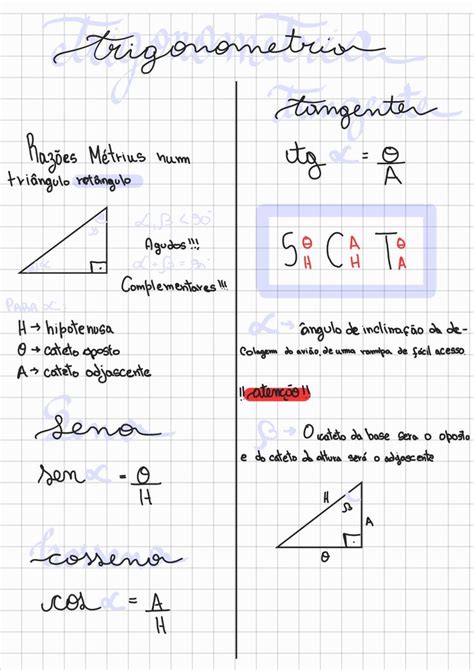 trigonometria
Razões Métrius num
triângulo retângulo
α, β < 90°
Agudos!!!
α + β = 90°
Complementares!!!
PARA α:
H → hipotenusa
O → cateto oposto
A → cateto adjascente
Seno
sen α = O
H
cosseno
cos α = A
H
tangenter
tg α = O
A
S O H C A H T O A
α → ângulo de inclinação da de-
colagem do avião, de uma rampa de fácil acesso.
!! atenção!!
β → O cateto da base sera o oposto
e do cateto da altura será o adjascente
H
β
A
O